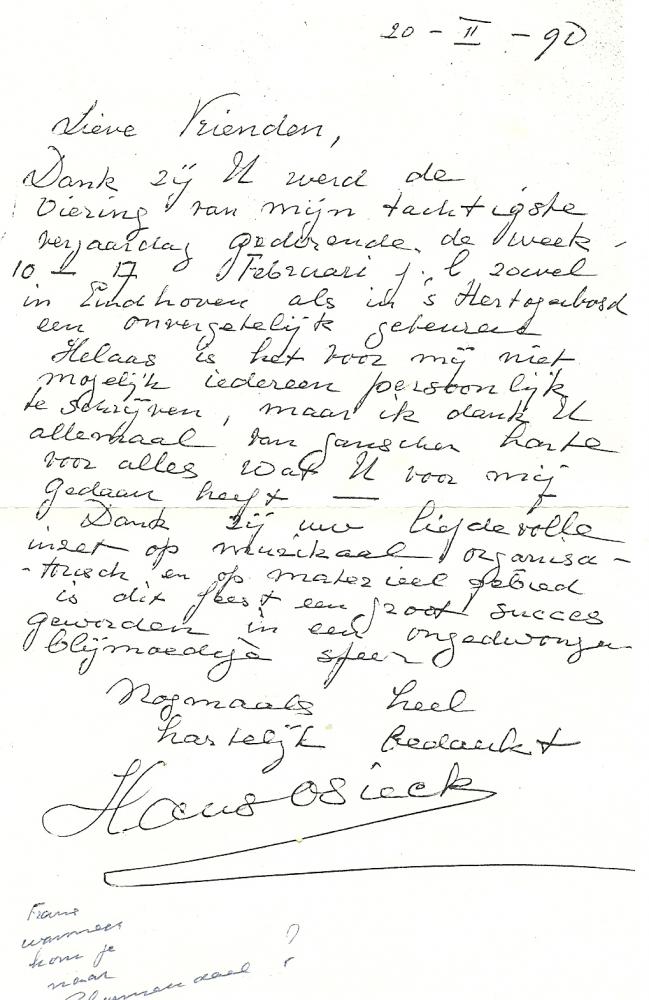 20 - II - 90
Lieve Vrienden,
Dank zij U werd de
Viering van mijn tachtigste
verjaardag gedurende de week
10 - 17 Februari j.l. zowel
in Eindhoven als in 's Hertogenbosch
een onvergetelijk gebeuren
Helaas is het voor mij niet
mogelijk iedereen persoonlijk
te schrijven, maar ik dank U
allemaal van ganscher harte
voor alles wat U voor mij
gedaan heeft —
Dank zij uw liefdevolle
inzet op muzikaal organisa-
-torisch en op materieel gebied
is dit feest een groot succes
geworden in een ongedwongen
blijmoedige sfeer
Nogmaals heel
hartelijk bedankt
Hans Osieck
Frans
wanneer
kom je
naar
Bloemendaal ?